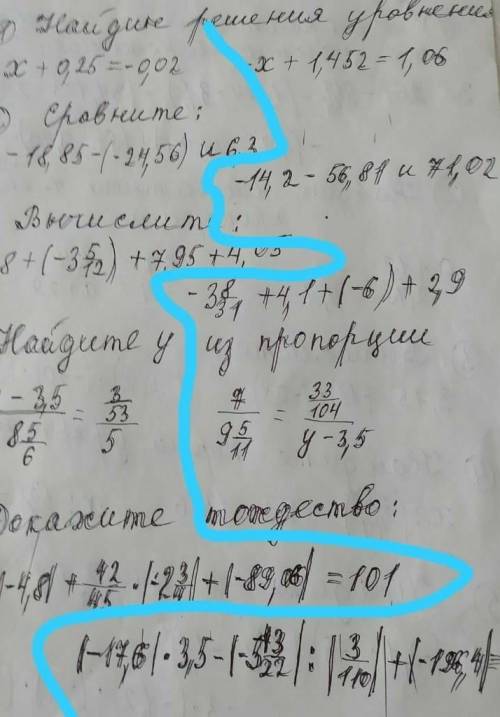 Найдите решения уравнения
x + 0,25 = -0,02    -x + 1,452 = 1,06
Сравните:
-18,85-(-24,56) и 6,3
-14,2 - 56,81 и 71,02
Вычислить:
8 + (-3 5/12) + 7,95 + 4,05
-3 8/31 + 4,1 + (-6) + 2,9
Найдите y из пропорции
- 3,5 / 8 5/6 = 3/53 / 5    7 / 9 5/11 = 33/104 / y - 3,5
Докажите тождество:
|-4,8| + 42/45 · |-2 3/4| + |-89,06| = 101
|-17,6| · 3,5 - | : |3/110| + =